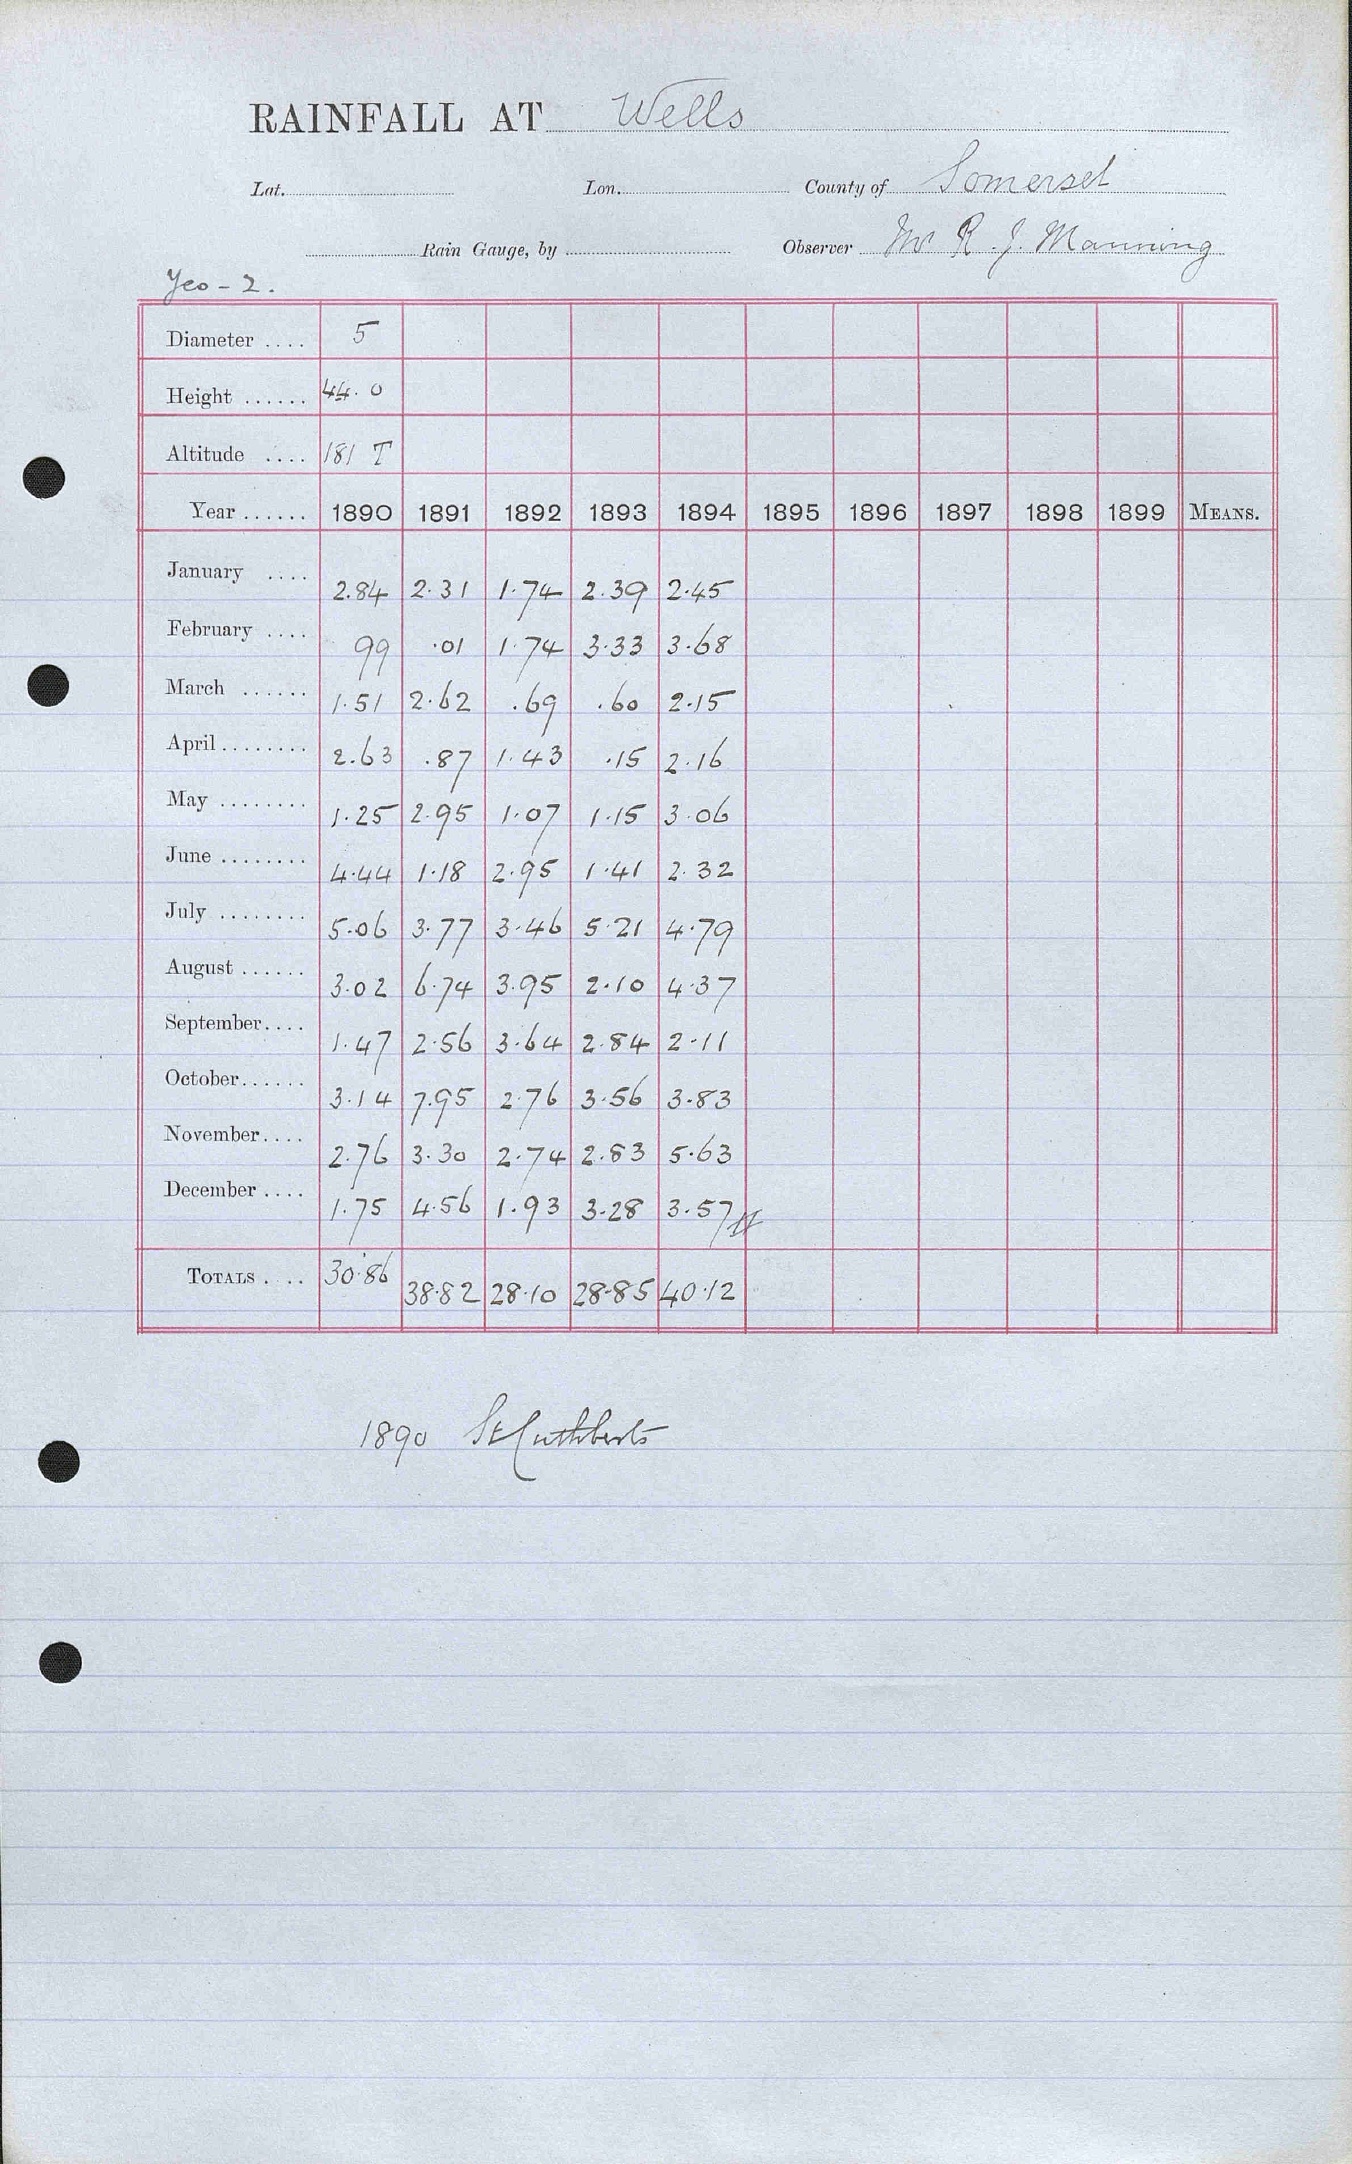 RAINFALL AT Wells
Lat. Lon. County of Somerset
Rain Gauge, by Observer Mr R. J. Manning
Yeo - 2.
Diameter .... 5
Height ...... 44.0
Altitude .... 181 T
Year ...... 1890 1891 1892 1893 1894 1895 1896 1897 1898 1899 MEANS.
January .... 2.84 2.31 1.74 2.39 2.45
February .... 99 .01 1.74 3.33 3.68
March ...... 1.51 2.62 .69 .60 2.15
April ........ 2.63 .87 1.43 .15 2.16
May ........ 1.25 2.95 1.07 1.15 3.06
June ........ 4.44 1.18 2.95 1.41 2.32
July ........ 5.06 3.77 3.46 5.21 4.79
August ...... 3.02 6.74 3.95 2.10 4.37
September.... 1.47 2.56 3.64 2.84 2.11
October...... 3.14 7.95 2.76 3.56 3.83
November.... 2.76 3.30 2.74 2.83 5.63
December .... 1.75 4.56 1.93 3.28 3.57
TOTALS .... 30.86 38.82 28.10 28.85 40.12
1890 St Cuthberts